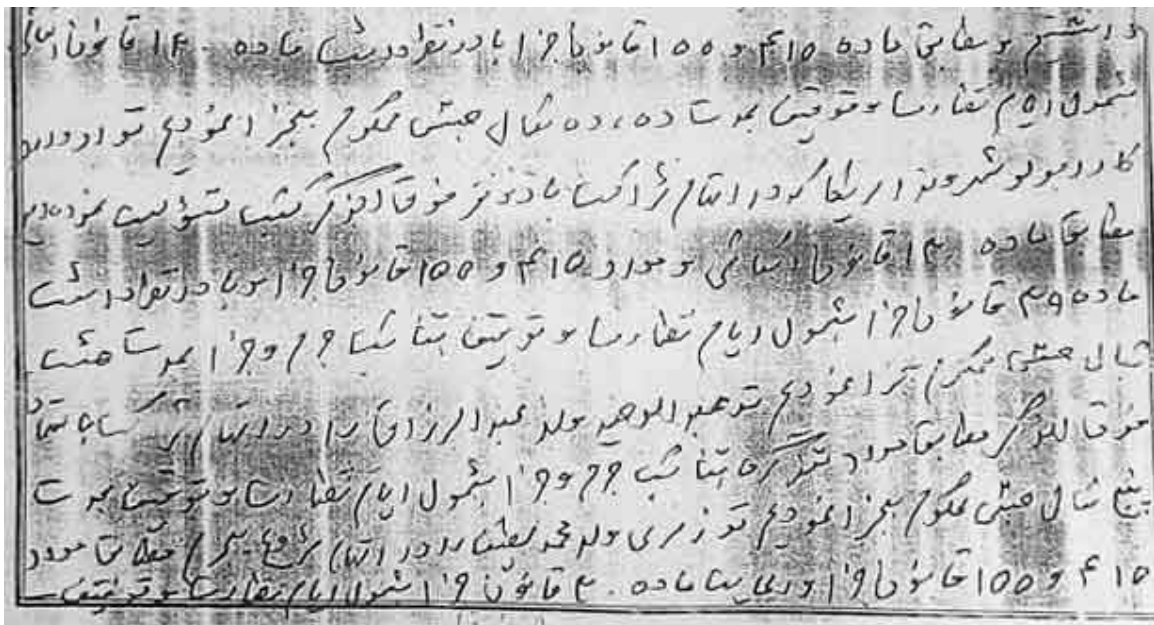 داشتیم و مطابق ماده ۴۱۵ و ۱۵۵ قانون جزا با در نظر داشت ماده ۱۳۰ قانون اساسی
بشمول ایام نظارت و توقیف بمدت ده، ده سال حبس محکوم بجزا نمودیم تو ادوارد
کارابولو شهروند امریکا که در اتهام شراکت با دو نفر فوق الذکر کسب مسؤلیت نموده
مطابق ماده ۱۳۰ قانون اساسی و مواد ۴۱۵ و ۱۵۵ قانون جزا و با در نظر داشت
ماده ۳۹ قانون جزا بشمول ایام نظارت و توقیف بتناسب جرم و جزا بمدت هشت
سال حبس محکوم بجزا نمودیم تو عبدالوحید ولد عبدالرزاق را در اتهام
فوق الذکر مطابق مواد متذکره بتناسب جرم و جزا بشمول ایام نظارت و توقیف بمدت
پنج سال حبس محکوم بجزا نمودیم تو زمری ولد محمد لطیف را در اتهام بجرم مطابق مواد
۴۱۵ و ۱۵۵ قانون جزا و رعایت ماده قانون جزا بشمول ایام نظارت و توقیف